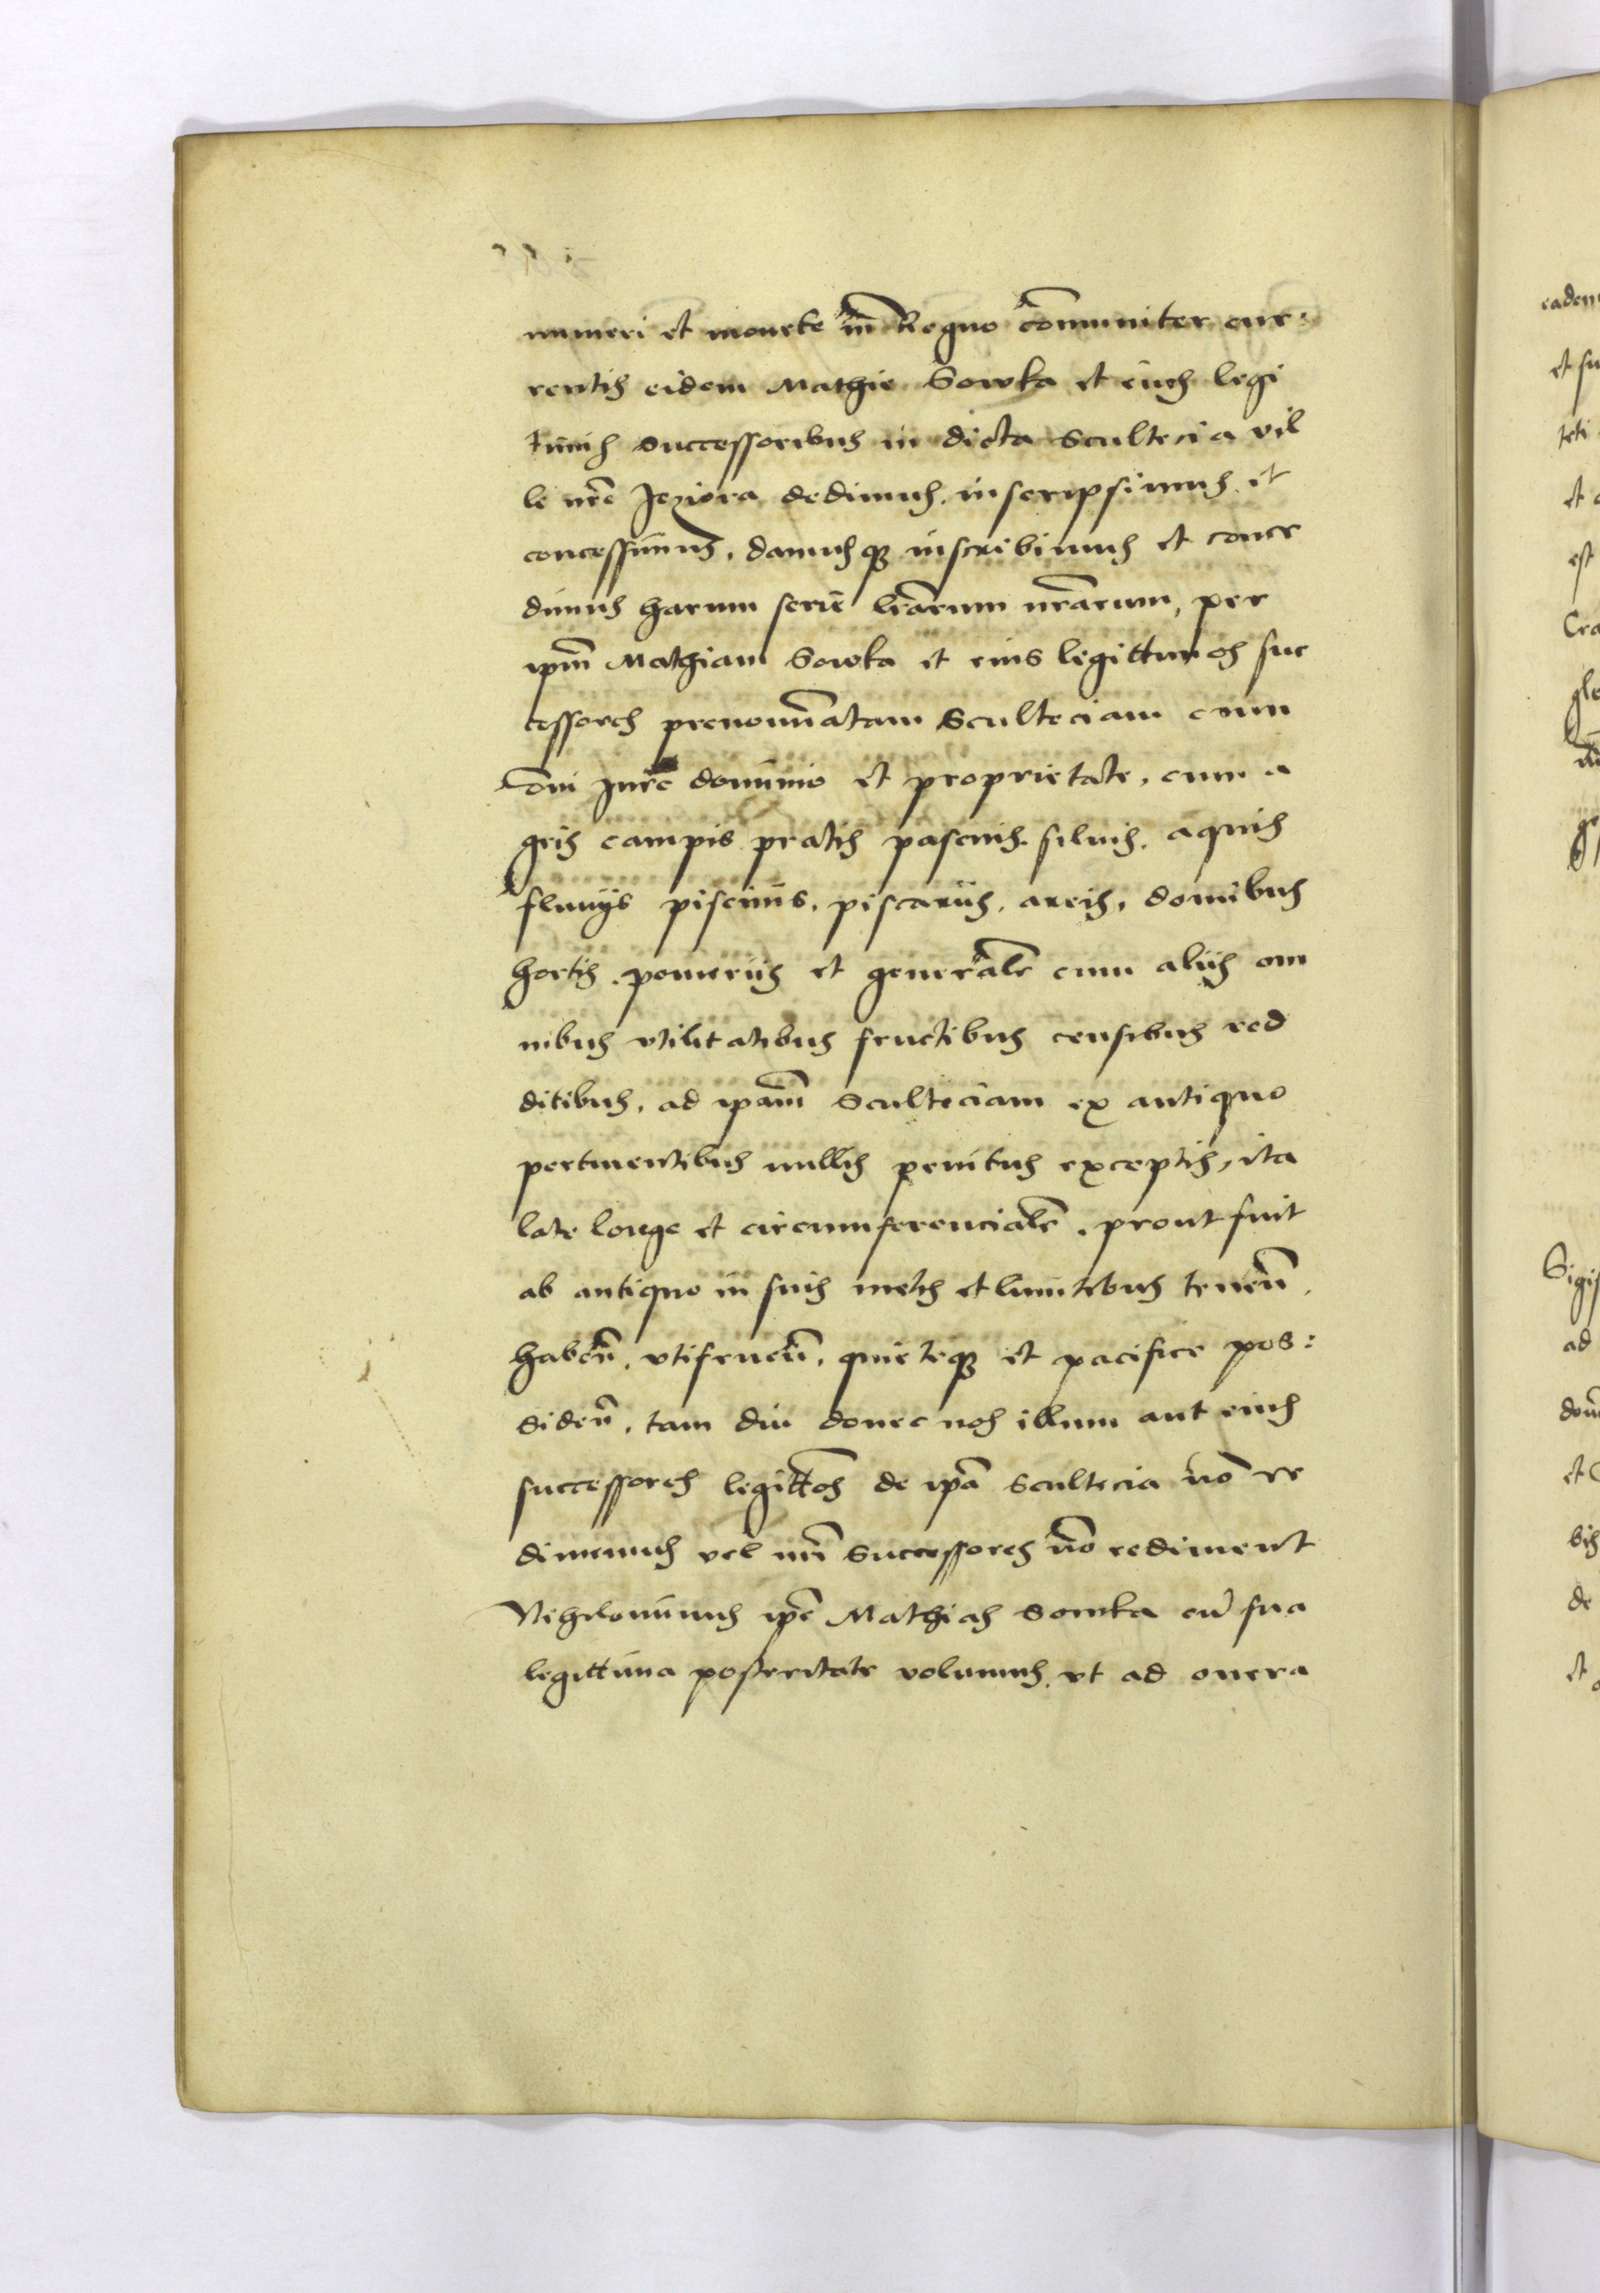 numeri et monete in̄ Regno cōmuniter cur:
rentis eidem Mathie Sowka et eius legi
timis successoribus in dicta Scultecia vil
le nr̄e Jeziora dedimus, inscripsimus et
concessimus, damusq₃ inscribimus et conce
dimus harum serie lr̄arum nr̄arum, per
ip̄m Mathiam Sowka et eius legittimos suc
cessores prenoīnatam Sculteciam cum
om̄i Jure dominio et proprietate, cum a
gris campis pratis pascuis siluis, aquis
fluuijs piscinis, piscariis, areis, domibus
hortis, pomeriis et generalr̄ cum aliis om
nibus vtilitatibus fructibus censibus red
ditibus, ad ip̄am Sculteciam ex antiquo
pertinentibus nullis penitus exceptis, ita
late longe et circumferencialr̄, prout fuit
ab antiquo in suis metis et limitibus tenen̄.
haben̄, vtifruen̄, quieteq₃ et pacifice pos:
siden̄, tam diu donec nos illum aut eius
successores legitt̄os de ip̄a Scultecia nō re
dimemus vel nr̄i Successores nō rediment
Nihilominus ip̄e Mathias Sowka cū sua
legittima posteritate volumus, vt ad onera
eadem
et su
teti
et
est
Cra
Sigis
ad
et
bis
de
et